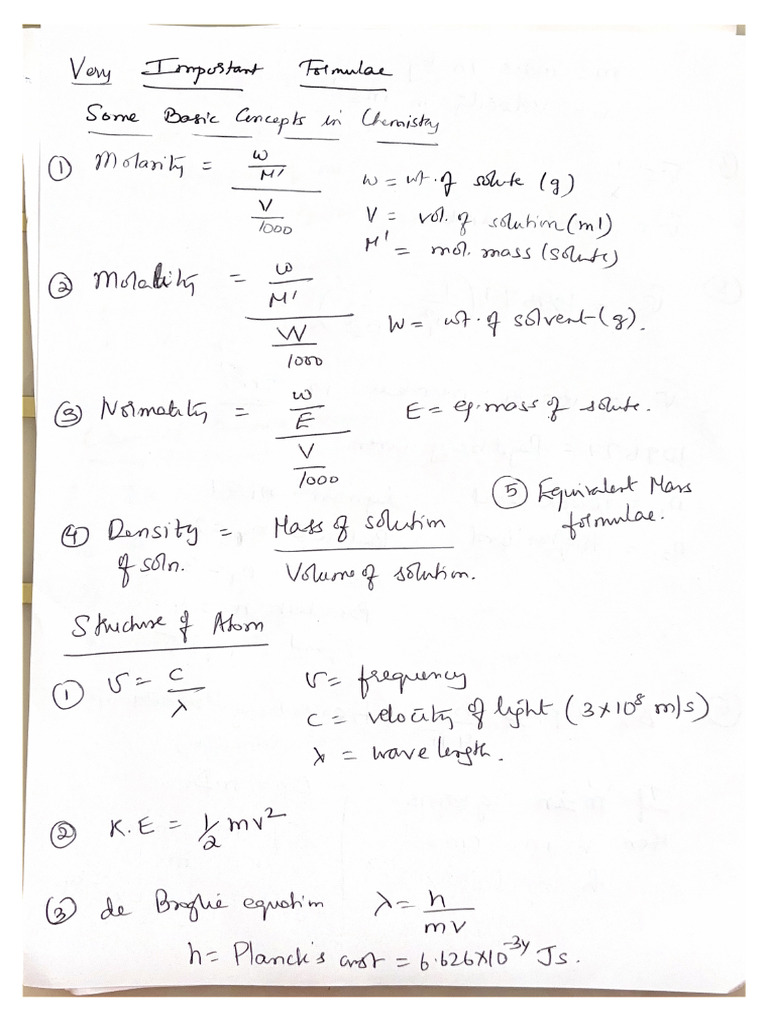 Very Important Formulae
Some Basic Concepts in Chemistry
① Molarity = (w/M') / (V/1000)
w = wt. of solute (g)
V = vol. of solution (ml)
M' = mol. mass (solute)
② Molality = (w/M') / (W/1000)
W = wt. of solvent (g).
③ Normality = (w/E) / (V/1000)
E = eq. mass of solute.
④ Density of soln. = Mass of solution / Volume of solution.
⑤ Equivalent Mass
formulae.
Structure of Atom
① υ = c/λ
υ = frequency
c = velocity of light (3×10⁸ m/s)
λ = wave length.
② K.E = 1/2 mv²
③ de Broglie equation λ = h/mv
h = Planck's const = 6.626×10⁻³⁴ Js.